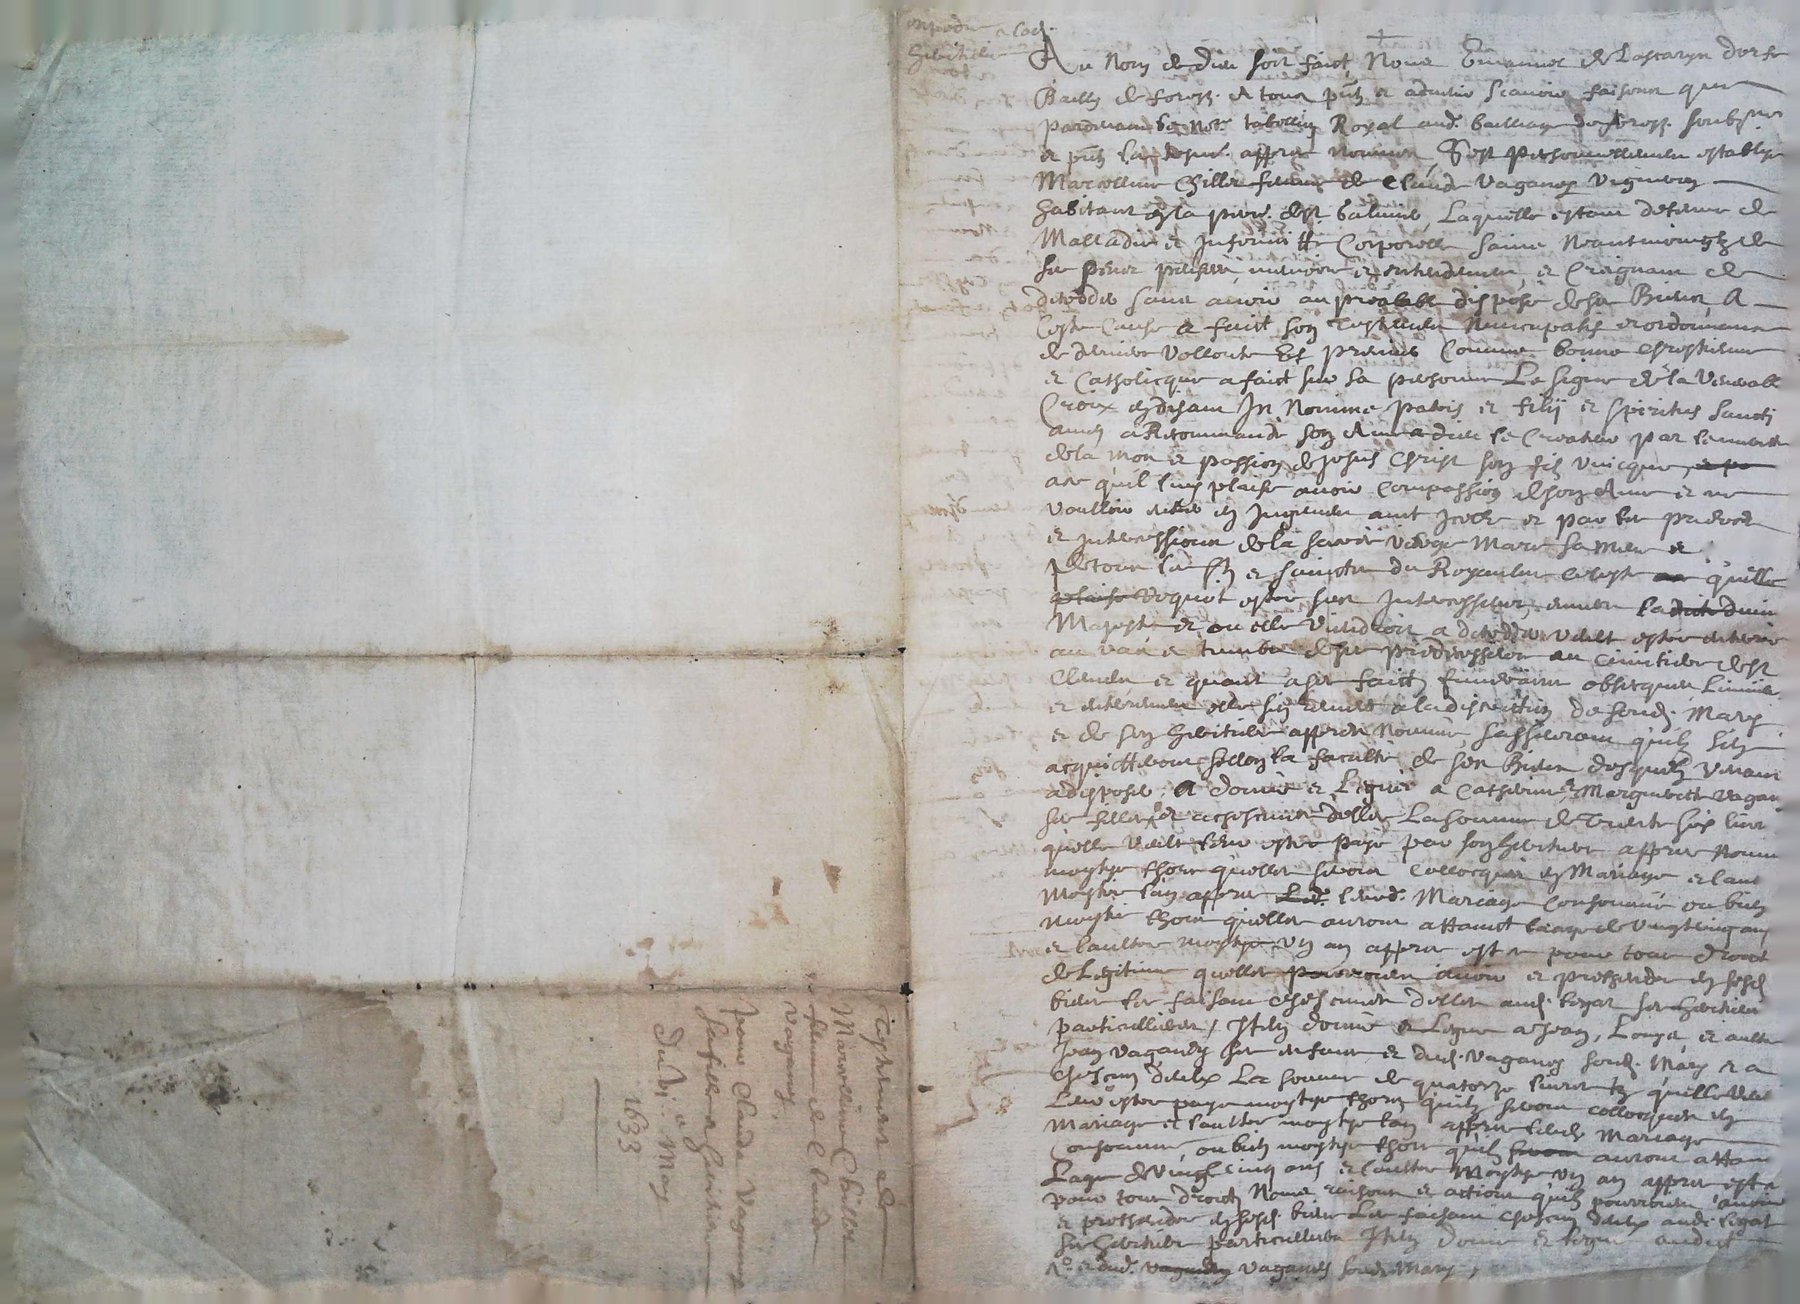 Au Nom de dieu soit faict Nous Emanuel de Lascarys durfe
Bailly de forestz A tous pntz et advenir scavoir faisons que
pardevant le Notre tabellion Royal aud. bailliage de forestz soubsigne
et pntz les tesmt. appres nommes, S'est personnellement establye
Marcelline Chillet femme de Claude Vaganey Vigneron
habitant en la parr. de St Galmier, Laquelle estant detenue de
Malladie et Infirmitte Corporelle saine Neantmoingtz de
ses sens pensee memoire et entendement, et Craignant de
decedder sans avoir au prealable dispose de ses Biens A
Ceste Cause a faict son testament Nuncupatif et ordonnance
de derniere Vollonte Et premier Comme bonne chrestienne
et Catholicque a faict sur sa personne Le signe de la Venerable
Croix en disant In Nomine patris et filij et spiritus sancti
amen a Recommande son Ame a dieu le Createur par le merite
de la mort et passion de Jesus Christ son filz Unicque, et po
a ce qu'il luy plaise avoir Compassion de son Ame et ne
voulloir entrer en Jugement avec Icelle et par les prieres
et Intercessions de la sacree vierge Marie sa mere et
de tous les stz et sainctes du Royaulme celeste qu'elle
plaise Requet estre ses Intercesseurs envers la dicte divine
Majeste et ou elle Viendroit a decedder veult estre enterree
au vas et tumbe de ses predecesseurs au Cimitiere de St
et quant a ses faictz funeraires obsecques Luminaire
et enterrement elle s'en Remet a la discretion de sond. Mary
et de son heritier appres Nomme, s'asseurant qu'ilz s'en
acquitteront sellon la faculte de ses Biens desquelz Venant
a disposer, A donne et Legue a Catherine et Marguerite Vagan
ses filles et a chescune d'elles La somme de Trente six livres
qu'elle Veult leur estre paye par son heritier appres Nomme
moytye lhors qu'elles seront Collocquees en Mariage et l'aut
Moytie l'an appres Led. leurd. Mariage Consomme ou bien
moytie lhors qu'elles auront attainct laage de Vingt cinq ans
et l'aultre moytye Un an appres et ce pour tous droict
de Legitime qu'elles pourroient avoir et pretendre en sesd
biens les faisant chescunes d'elles aud. legat ses heritieres
particullieres / Item donne et Legue a Jean, Louys et aultre
Jean Vaganey ses enfans et dud. Vaganey sond. Mary et a
chescun d'eulx La somme de quatorze livres tz qu'elle Veult
Leur estre paye moytye lhors qu'ilz seront collocques en
Mariage et l'aultre moytye l'an appres leurd Mariage
Consomme, ou bien moytye lhors qu'ilz seront auront attain
L'aage de Vingt cinq ans et l'aultre Moytye Un an appres et ce
pour tous droictz Noms, raisons et actions qu'ilz pourroient avoir
et pretendre en sesd biens Les faisant chescun d'eulx aud. legat
ses heritiers particulliers Item donne et legue audict
et dud. Vaganey Vaganey sond. Mary,
testament de
Marcelline Chillet
femme de Claude
Vaganey
pour Claude Vaganey
sa fille et heritiere
Du VIe May
1633